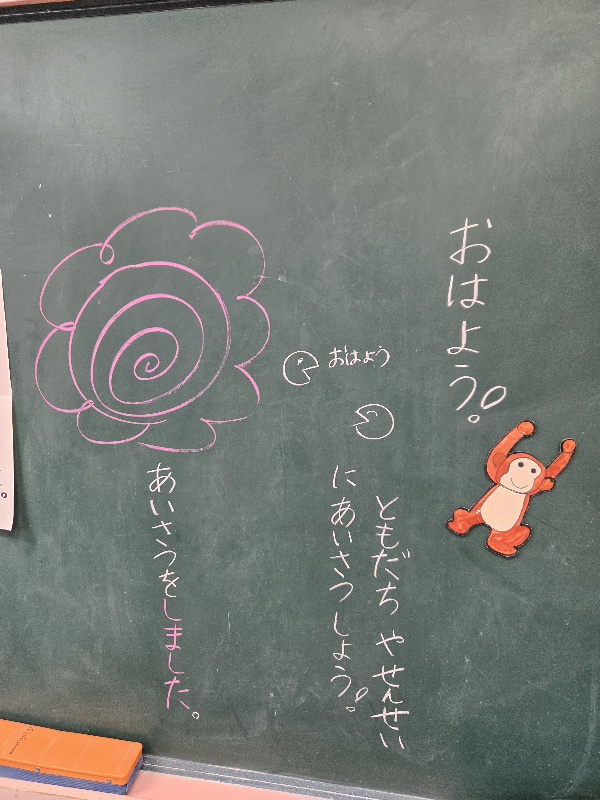 おはよう!
おはよう
ともだちやせんせい
にあいさつしよう!
あいさつをしました。